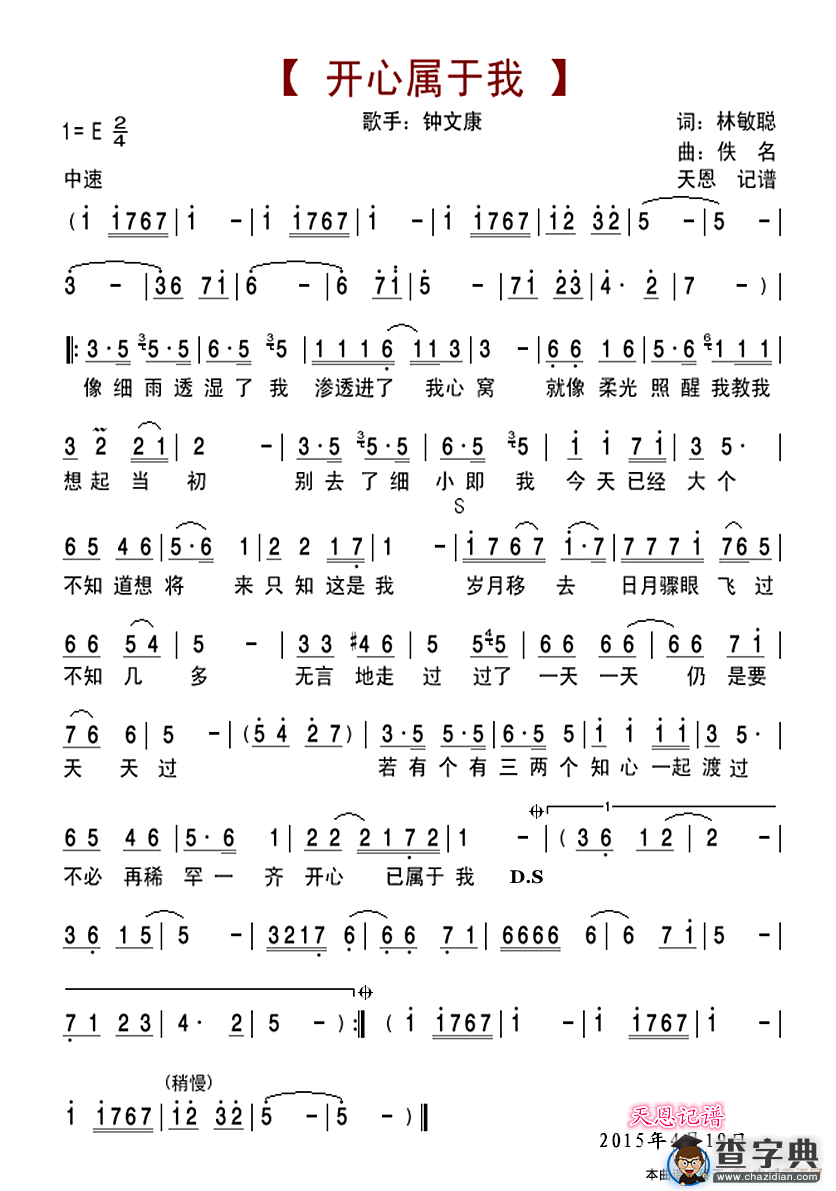 【 开心属于我 】
1= E 2/4
歌手：钟文康
词：林敏聪
曲：佚 名
中速
天恩 记谱
( i i767 | i - | i i767 | i - | i i767 | i2 32 | 5 - | 5 - |
3 - | 36 7i | 6 - | 6 7i | 5 - | 7i 23 | 4· 2 | 7 - ) |
‖: 3·5 35·5 | 6·5 35 | 1116 113 | 3 - | 66 16 | 5·6 6111 |
像细雨透湿了我 渗透进了 我心窝 就像柔光照醒我教我
3 2 21 | 2 - | 3·5 35·5 | 6·5 35 | i i 7i | 3 5· |
想起当 初 别去了细小即我 今天已经大个
S
65 46 | 5·6 1 | 2 2 17 | 1 - | i767 i·7 | 777i 765 |
不知道想将 来只知这是我 岁月移 去 日月骤眼飞过
66 54 | 5 - | 33 #46 | 5 545 | 66 66 | 66 7i |
不知几 多 无言 地走过 过了 一天一天 仍是要
76 6 | 5 - | (54 27) | 3·5 5·5 | 6·5 5·5 | i i ii | 3 5· |
天 天过 若有个有三两个知心一起渡过
1
65 46 | 5·6 1 | 22 2172 | 1 - | (36 12 | 2 - |
不必再稀罕一 齐开心 已属于我 D.S
36 15 | 5 - | 3217 6 | 66 71 | 6666 6 | 6 7i | 5 - |
71 23 | 4· 2 | 5 - ) :‖ ( i i767 | i - | i i767 | i - |
(稍慢)
i i767 | i2 32 | 5 - | 5 - ) ‖
天恩记谱
2015年4月19日
查字典
本曲谱
www.chazidian.com